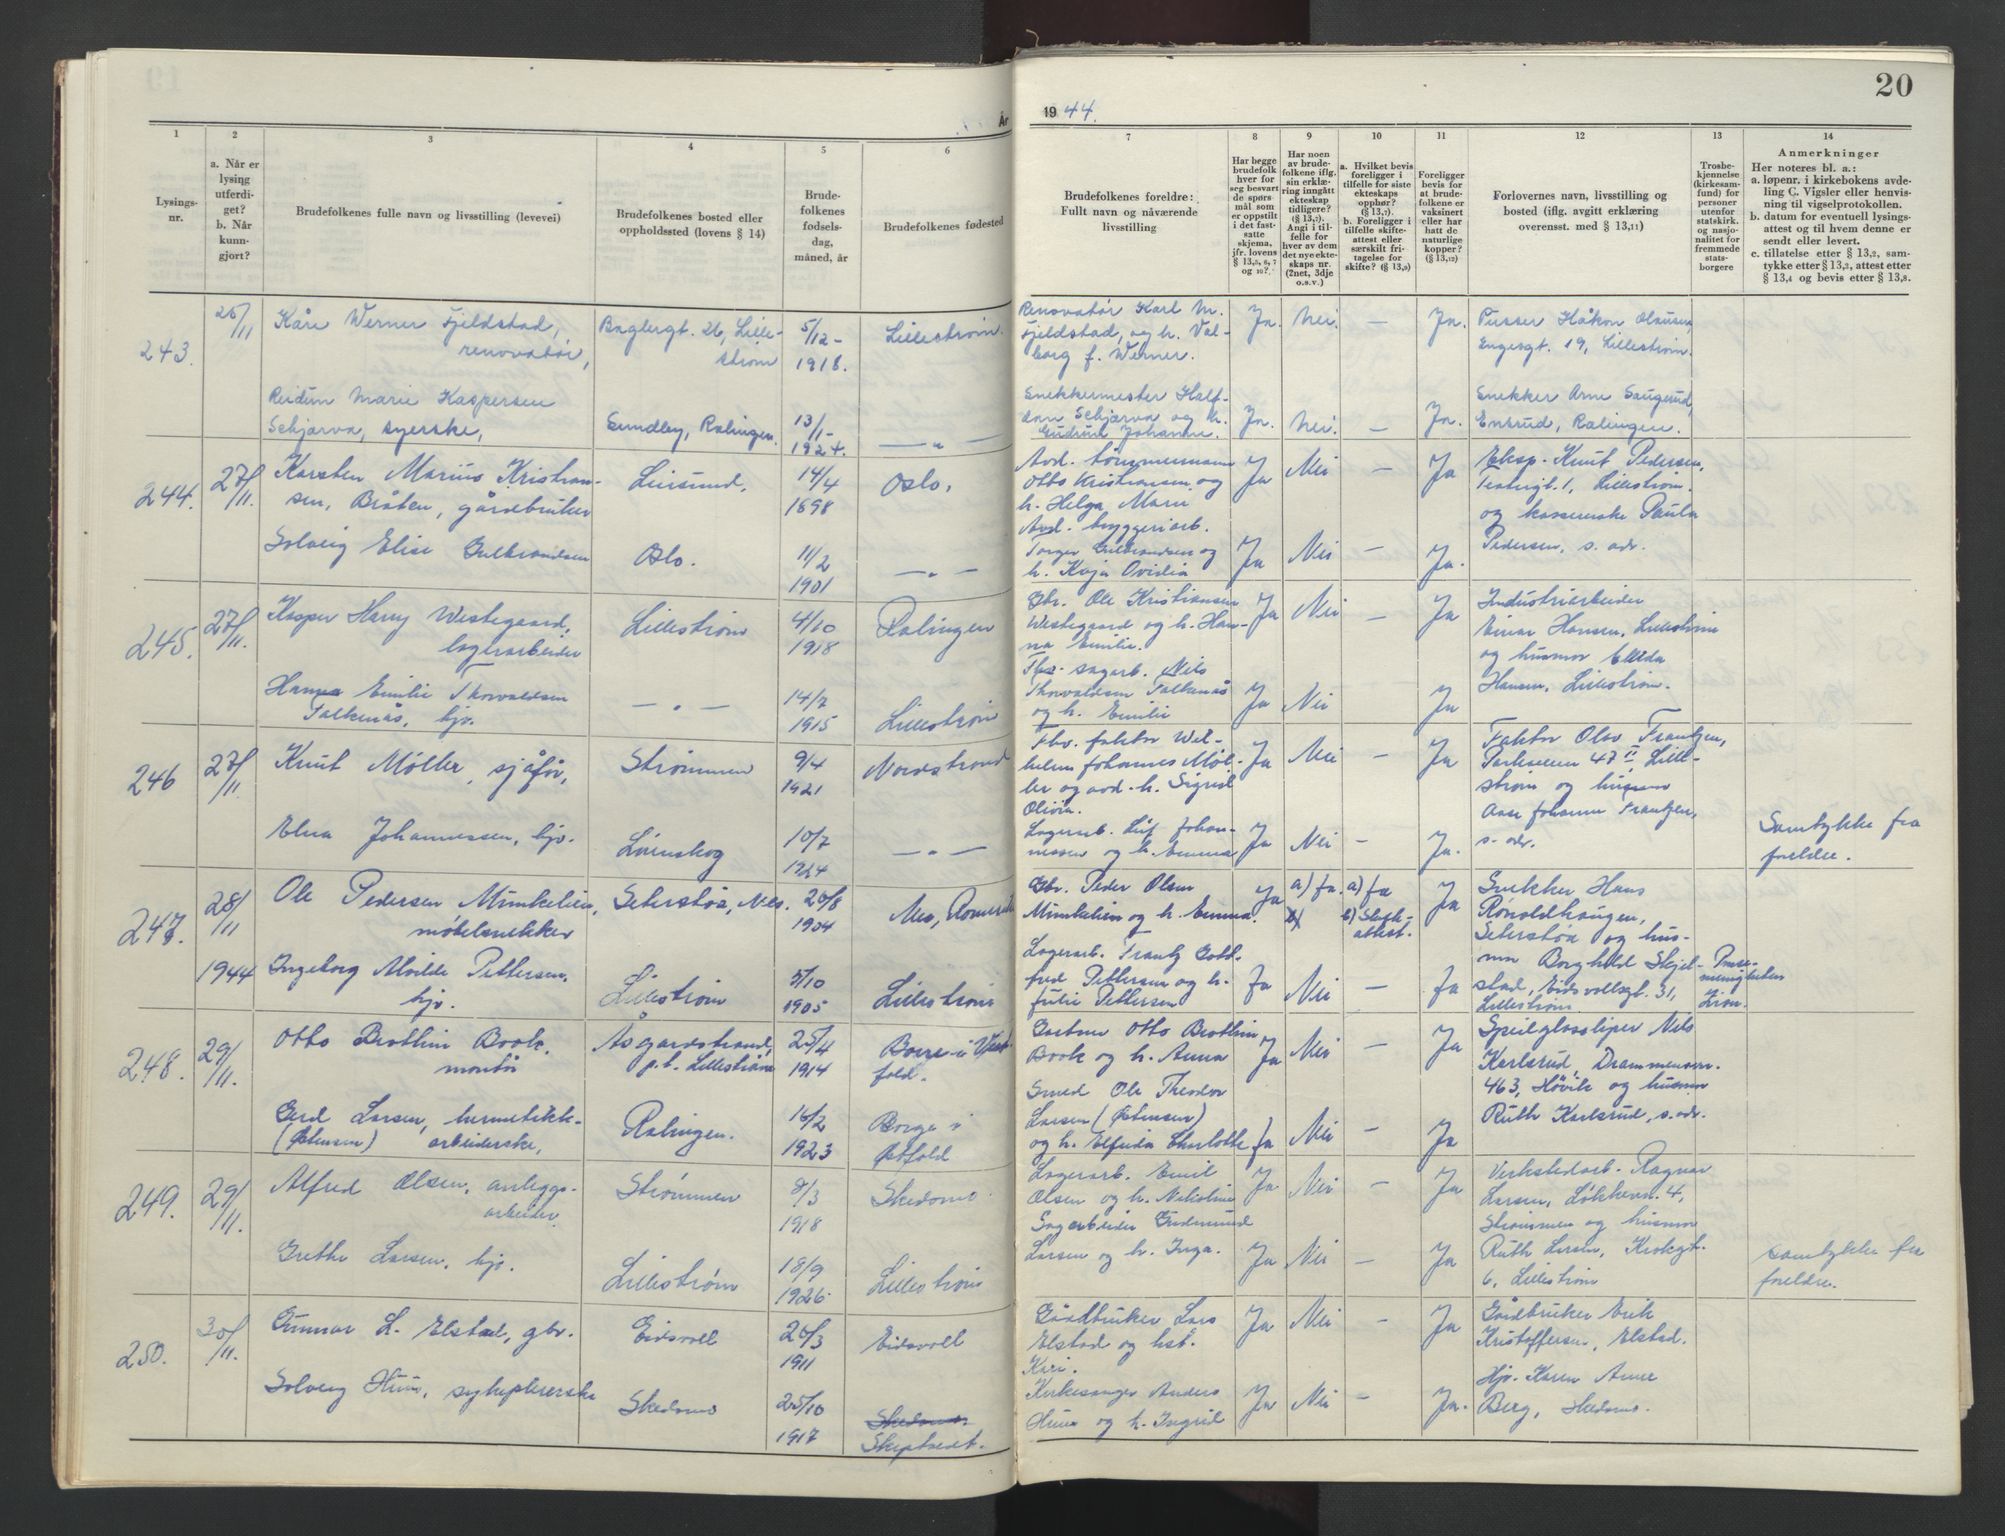 År
1
2
3
4
5
6
Lysings-
nr.
a. Når er
lysing
utferdi-
get?
b. Når
kunn-
gjort?
Brudefolkenes fulle navn og livsstilling (levevei)
Brudefolkenes bosted eller
oppholdssted (lovens § 14)
Brude-
folkenes
fødsels-
dag,
måned, år
Brudefolkenes fødested
243.
26/11
Kåre Werner Fjeldstad,
renovatør,
Baglergt. 26, Lille-
strøm
5/12 -
1918.
Lillestrøm.
Reidun Marie Kaspersen
Schjarva, syerske,
Sundby, Rælingen.
13/1-
1924.
— " —
244.
27/11.
Karsten Marius Kristian-
sen, Bråten, gårdbruker
Leirsund,
14/4
1898
Oslo,
Solveig Elise Gulbrandsen
Oslo.
11/2
1901
— " —
245.
27/11.
Kasper Harry Westegaard,
lagerarbeider
Lillestrøm
4/10
1918
Rælingen
Hanna Emilie Thorvaldsen
Falkenås, hjv.
— " —
14/7
1915
Lillestrøm
246
27/11.
Knut Møller, sjåfør,
Strømmen
9/4
1921
Nordstrand
Elna Johannessen, hjv.
Lørenskog
10/7
1924
— " —
247.
28/11
1944
Ole Pedersen Munkelien,
møbelsnekker
Seterstøa, Nes.
20/8
1904
Nes, Romerike
Ingeborg Alvilde Pettersen,
hjv.
Lillestrøm
5/10
1905
Lillestrøm
248.
29/11.
Otto Brothin Book,
montør
Åsgårdstrand,
p.t. Lillestrøm
25/4
1914
Borre i Vest-
fold.
Gerd Larsen, hermetikk-
(Østensen) arbeiderske,
Rælingen.
16/2
1923
Borge i
Østfold
249.
29/11.
Alfred Olsen, anleggs-
arbeider
Strømmen
8/3
1918
Skedsmo
Grethe Larsen, hjv.
Lillestrøm
18/9
1926
Lillestrøm
250.
30/11.
Gunnar L. Elstad, gbr.
Eidsvoll
26/3
1911
Eidsvoll
Solveig Huus, sykepleierske
Skedsmo
25/10
1917
Skedsmo.
Skiptvedt.
20
1944.
7
8
9
10
11
12
13
14
Brudefolkenes foreldre:
Fullt navn og nåværende
livsstilling
Har begge
brudefolk
hver for
seg besvart
de spørs-
mål som
er oppstilt
i det fast-
satte
skjema,
jfr. lovens
§ 13,5, 6, 7
og 10?
Har noen
av brude-
folkene iflg.
sin erklæ-
ring inngått
ekteskap
tidligere?
(§ 13,7).
Angi i til-
felle for
hver av dem
det nye ekte-
skaps nr.
(2net, 3dje
o.s.v.)
a. Hvilket bevis
foreligger i
tilfelle for siste
ekteskaps
opphør?
(§ 13,7).
b. Foreligger i
tilfelle skifte-
attest eller
særskilt fri-
tagelse for
skifte? (§ 13,9)
Foreligger
bevis for
at brude-
folkene er
vaksinert
eller har
hatt de
naturlige
kopper?
(§ 13,12)
Forlovernes navn, livsstilling og
bosted (iflg. avgitt erklæring
overensst. med § 13,11)
Trosbe-
kjennelse
(kirkesam-
fund) for
personer
utenfor
statskirk.
og nasjo-
nalitet for
fremmede
stats-
borgere
Anmerkninger
Her noteres bl. a.:
a. løpenr. i kirkebokens avde-
ling C. Vigsler eller henvis-
ning til vigselprotokollen.
b. datum for eventuell lysings-
attest og til hvem denne er
sendt eller levert.
c. tillatelse etter § 13,2, sam-
tykke etter § 13,3, attest etter
§ 13,4 og bevis etter § 13,8.
Renovatør Karl M.
Fjeldstad, og h. Val-
borg f. Werner.
Ja. Nei. — Ja.
Pusser Håkon Olaussen
Engesgt. 19, Lillestrøm.
Snekkermester Half-
dan Schjarva og h.
Gudrun Johanne.
Ja. Nei. — Ja.
Snekker Arne Saugerud,
Ensrud, Rælingen.
Avd. tømmermann
Otto Kristiansen og
h. Helga Marie
Ja Nei — Ja
Eksp. Knut Pedersen,
Teatergt. 1, Lillestrøm.
og kassererske Paula
Pedersen, s. adr.
Avd. bryggeriarb.
Torger Gulbrandsen og
h. Kaja Ovidia
Ja Nei — Ja.
Gbr. Ole Kristiansen
Westegaard og h. Han-
na Emilie.
Ja Nei — Ja
Industriarbeider
Einar Hansen, Lillestrøm
og husmor Ellida
Hansen, Lillestrøm.
Fhv. sagarb. Nils
Thorvaldsen Falkenås
og h. Emilie
Ja Nei Ja
Fhv. faktor Wil-
helm Johannes Møl-
ler og avd. h. Sigrid
Olivia.
Ja Nei — Ja
Faktor Olav Frantzen,
Parkalleen 47 II, Lille-
strøm og husmor
Aase Johanne Frantzen,
s. adr.
Lagerarb. Leif Johan-
nessen og h. Emma
Ja Nei — Ja.
Samtykke fra
foreldre.
Gbr. Peder Olsen
Munkelien og h. Emma.
Ja a) Ja. a) Ja
b) b) Skifte-
attest.
Ja
Snekker Hans
Rønoldhaugen,
Seterstøa og hus-
mor Borghild Skjel-
stad, Eidsvollsgt. 31,
Lillestrøm
Lagerarb. Frantz Gott-
fred Pettersen og h.
Julie Pettersen
Ja Nei — Ja
Pinse-
menigheten
Zion.
Gartner Otto Brothin
Book og h. Anna
Ja Nei — Ja
Speilglassliper Nils
Karlsrud, Drammensvn.
463, Høvik og husmor
Ruth Karlsrud, s. adr.
Smed Ole Theodor
Larsen (Østensen)
og h. Elfrida Charlotte
Ja Nei — Ja
Lagerarb. Emil
Olsen og h. Nikoline
Ja Nei — Ja
Verkstedarb. Ragnar
Larsen, Løkkevn. 4,
Strømmen og husmor
Ruth Larsen, Krokgt.
6, Lillestrøm
Sagarbeider Gudmund
Larsen og h. Inga.
Ja Nei — Ja
Samtykke fra
foreldre.
Gårdbruker Lars
Elstad og hst.
Kari.
Ja Nei — Ja
Gårdbruker Erik
Kristoffersen, Elstad.
Kirkesanger Anders
Huus og h. Ingrid
Ja Nei — Ja.
Hjv. Karen Anne
Berg, Skedsmo.